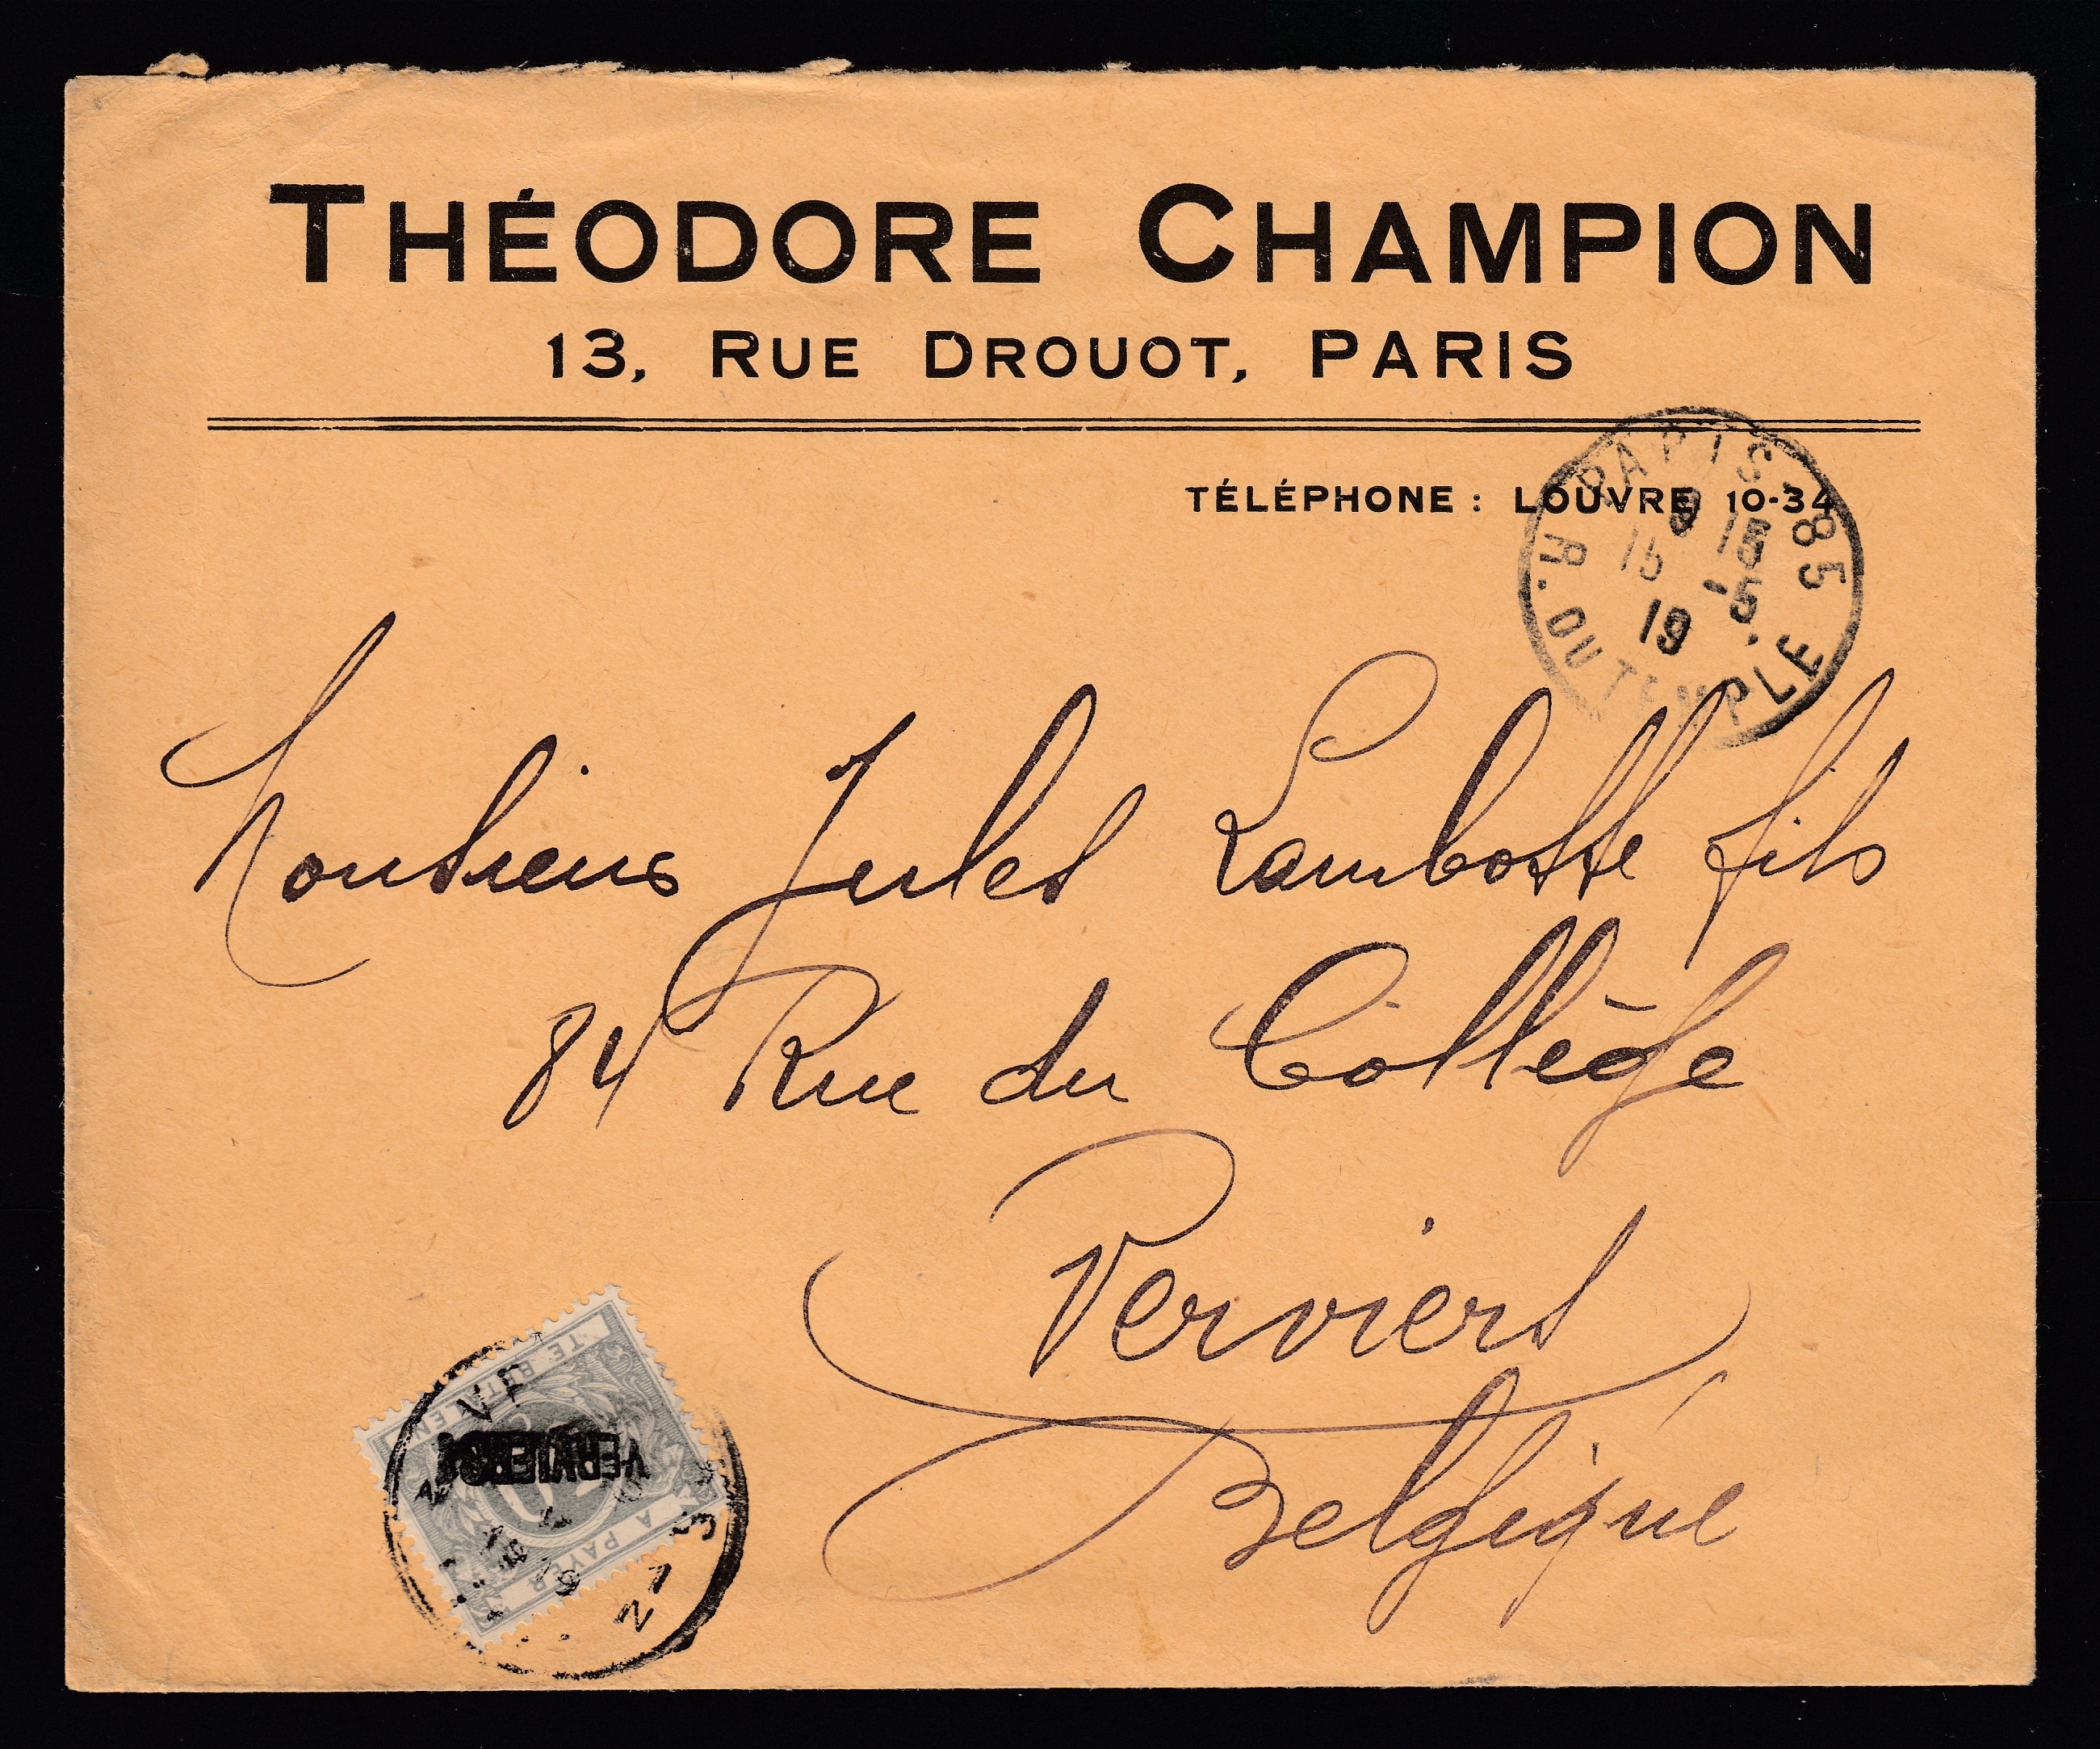 THÉODORE CHAMPION
13, RUE DROUOT, PARIS
TÉLÉPHONE : LOUVRE 10-34
PARIS 85
15 15
-5
19
R. DU TEMPLE
Monsieur Jules Lambotte fils
84 Rue du Collège
Verviers
Belgique
TE BETALEN
VERVIERS
A PAYER